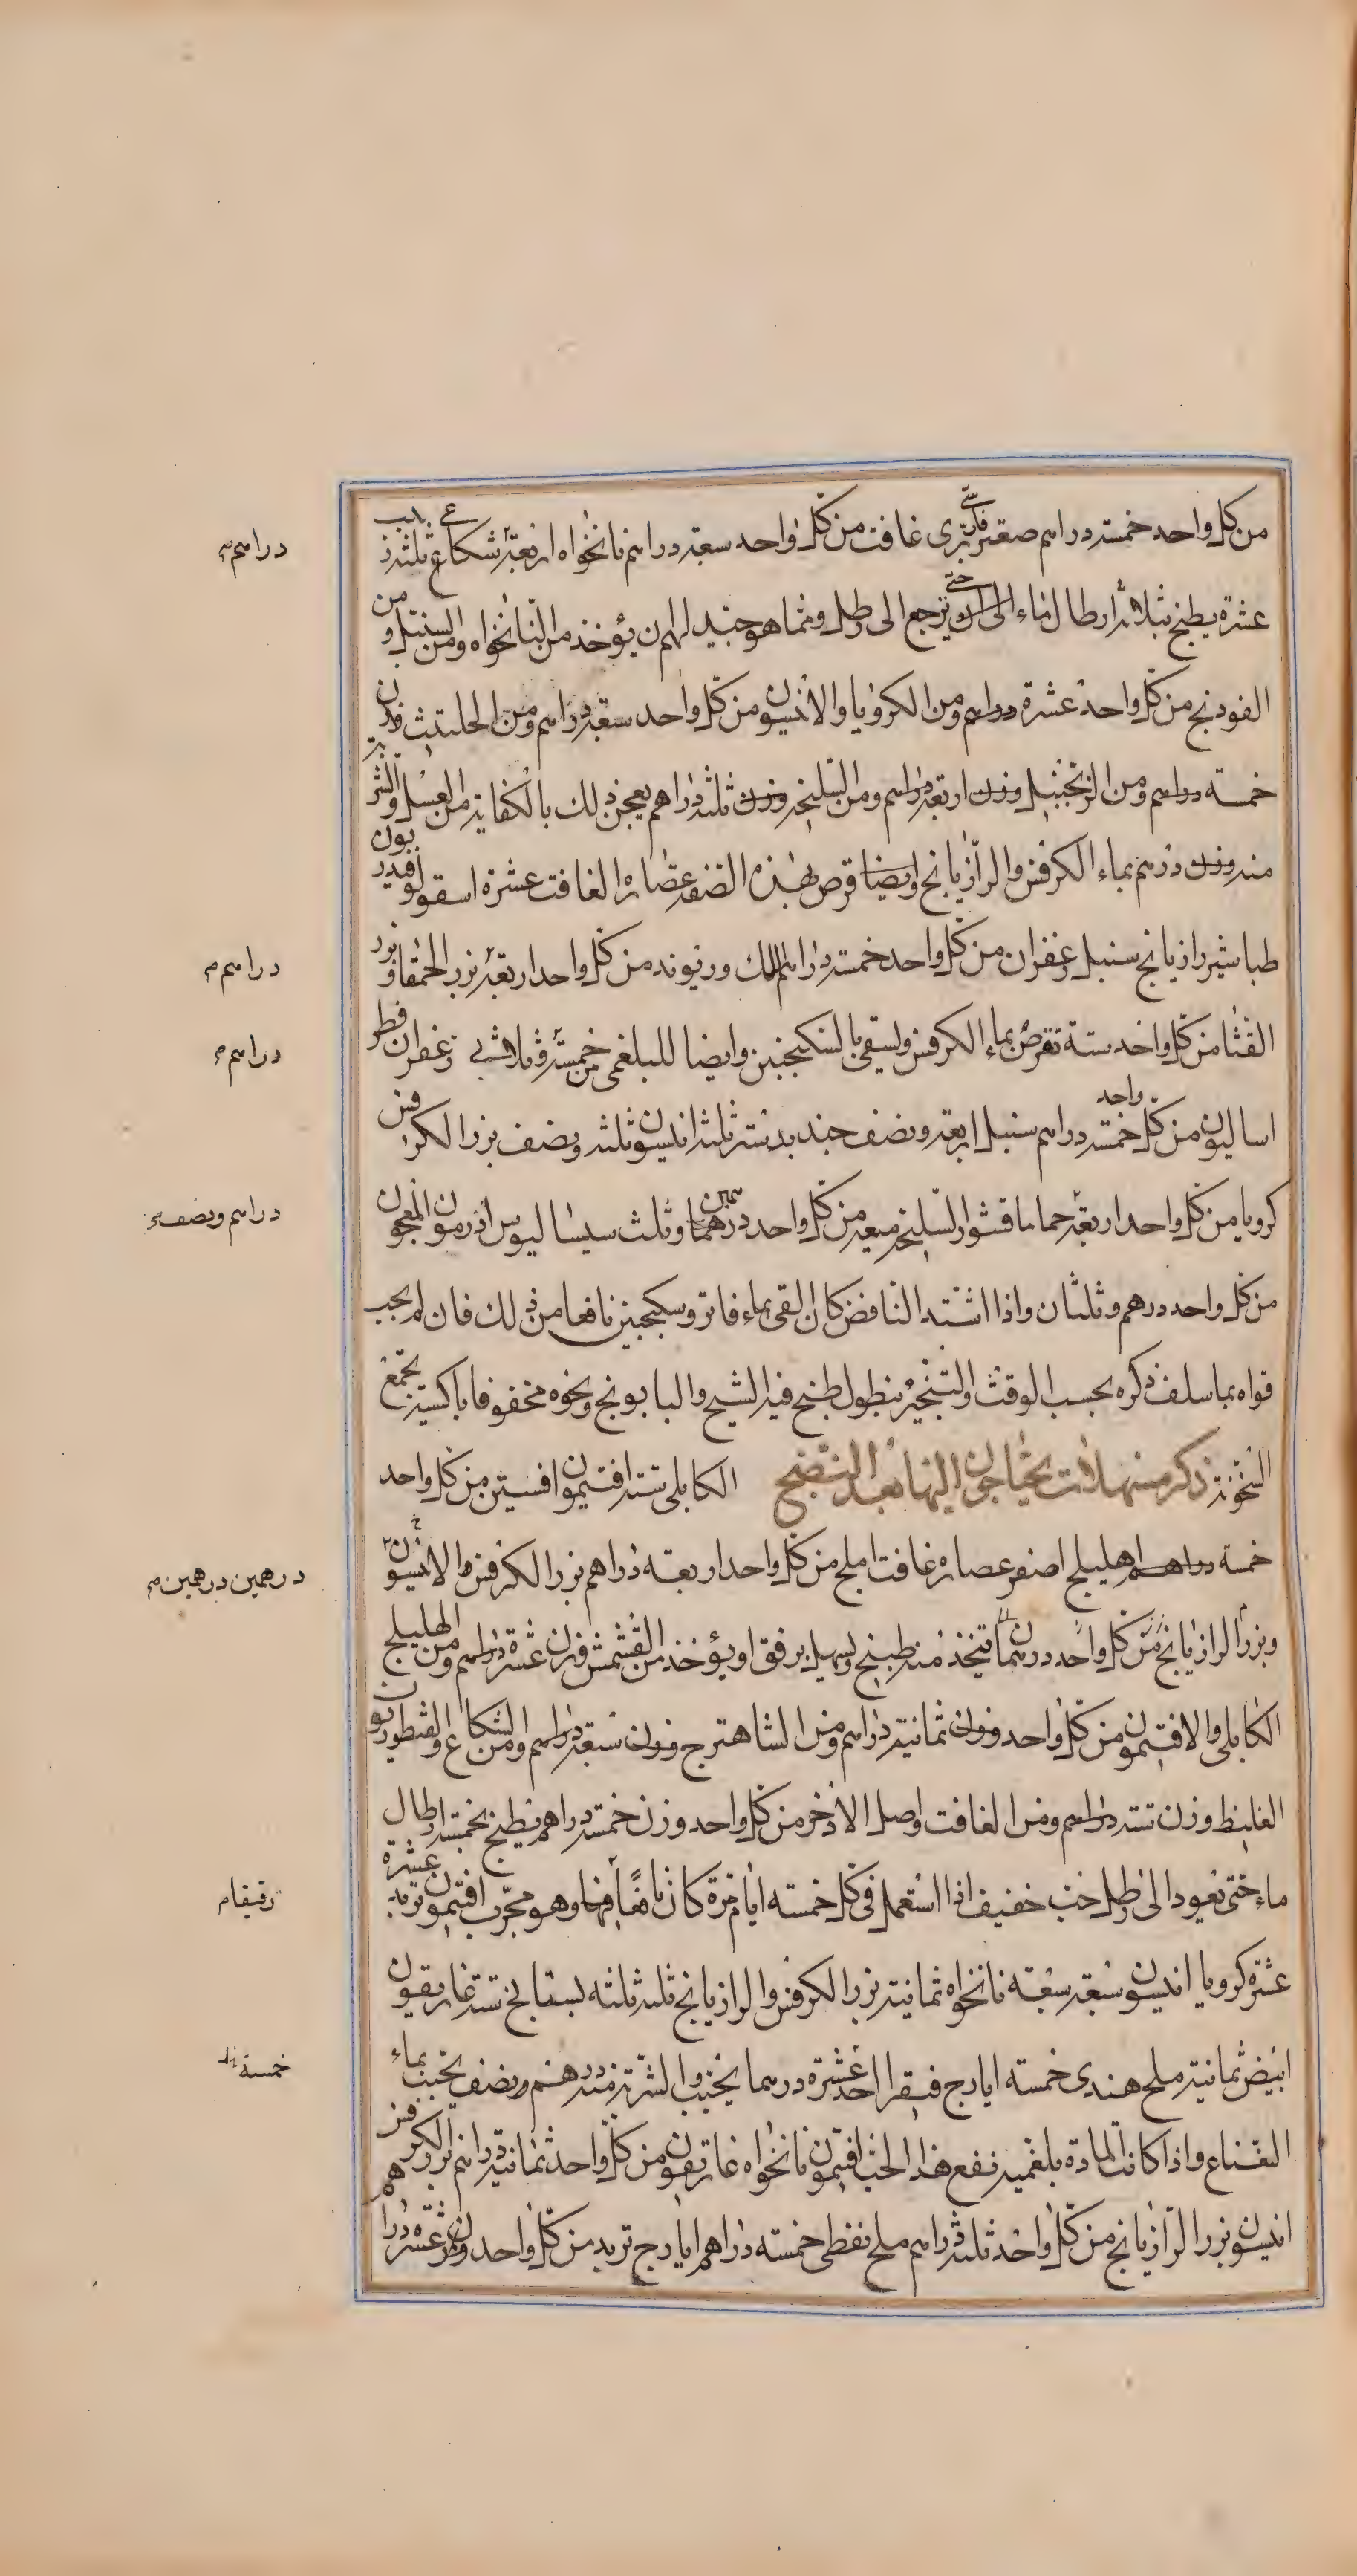 من كل واحد خمسة دراهم صعتر فارسي برى غافت من كل واحد سبعة دراهم نانخواه اربعة شكاع ثلثة زبيب
عشرة يطبخ بثلاثة ارطال ماء الى ان حتى يرجع الى رطل ومما هو جيد لهم ان يؤخذ من النانخواه ومن السنبل ومن
الفودنج من كل واحد عشرة دراهم ومن الكرويا والانيسون من كل واحد سبعة دراهم ومن الحلتيث وزن
خمسة دراهم ومن الزنجبيل وزن اربعة دراهم ومن السليخة وزن ثلثة دراهم يعجن ذلك بالكفاية من العسل والشربة
منه وزن درهم بماء الكرفس والرازيانج وايضا قرص بهذه الصفة عصاره الغافت عشرة اسقولوقندريون
طباشير رازيانج سنبل زعفران من كل واحد خمسة دراهم لك وريوند من كل واحد اربعة بزر الحمقا وبزر
القثا من كل واحد ستة تقرص بماء الكرفس ويسقى بالسكنجبين وايضا للبلغمى خمسة وثلاثين زعفران فطر
اساليون من كل واحد خمسة دراهم سنبل اربعة ونصف جندبيدستر ثلثة انيسون ثلثة ونصف بزر الكرفس
كرويا من كل واحد اربعة حماما قشور السليخة ميعه من كل واحد درهمين وثلث سيساليوس اذرمون المعجون
من كل واحد درهم وثلثان واذا اشتد النافض كان القى بماء فاتر وسكنجبين نافعا من ذلك فان لم يجب
قواه بما سلف ذكره بحسب الوقت والتبخير بنطول طبخ فيه الشيح والبابونج ونحوه محفوفا باكسية تجمع
السخونة ذكر مسهلات يحتاجون اليها بعد النضج الكابلى ستة افتيمون افسنتين من كل واحد
خمسة دراهم هليلج اصفر عصاره غافت املج من كل واحد اربعة دراهم بزر الكرفس والانيسون
وبزر الرازيانج من كل واحد درهمان يتخذ منه طبيخ ويسهل برفق او يؤخذ من القشمش وزن عشرة دراهم ومن الهليلج
الكابلى والافتيمون من كل واحد وزن ثمانية دراهم ومن الشاهترج وزن سبعة دراهم ومن الشكاع والقنطوريون
الغليظ وزن ستة دراهم ومن الغافت واصل الاذخر من كل واحد وزن خمسة دراهم يطبخ بخمسة ارطال
ماء حتى يعود الى رطل حب خفيف اذا استعمل فى كل خمسه ايام مرة كان نافعا وهو مجرب افتيمون عشرة تربد
عشرة كرويا انيسون سبعة سبعة نانخواه ثمانية بزر الكرفس والرازيانج ثلثة ثلثه بسفايج ستة غاريقون
ابيض ثمانية ملح هندى خمسه ايارج فيقرا احد عشرة درهما يحبب والشربة منه درهم ونصف يحبب بماء
النعناع واذا كانت المادة بلغمية نفع هذا الحب افتيمون نانخواه غاريقون من كل واحد ثمانية دراهم بزر الكرفس
انيسون بزر الرازيانج من كل واحد ثلثة دراهم ملح نفطى خمسه دراهم ايارج تربد من كل واحد وزن عشره دراهم
دراهم
دراهم
دراهم
دراهم ونصف
درهمين درهمين
رقيقا
خمسة